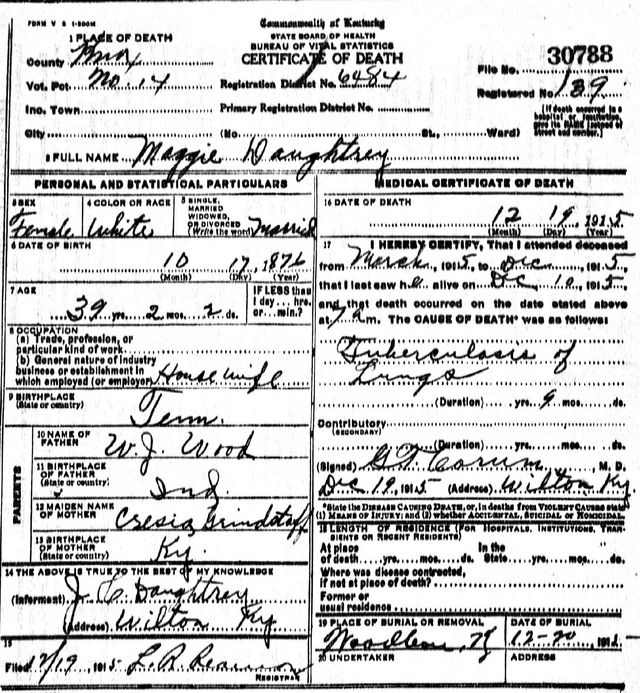 FORM V S 1-200M
Commonwealth of Kentucky
STATE BOARD OF HEALTH
BUREAU OF VITAL STATISTICS
CERTIFICATE OF DEATH
1 PLACE OF DEATH
County Knox
Vot. Pct No. 14
Inc. Town
City (No St., Ward)
Registration District No. 6484
Primary Registration District No.
File No. 30788
Registered No. 139
(If death occurred in a
hospital or institution,
give its NAME instead of
Street and number.)
2 FULL NAME Maggie Daughtrey
PERSONAL AND STATISTICAL PARTICULARS
3 SEX
Female
4 COLOR OR RACE
White
5 SINGLE,
MARRIED
WIDOWED,
OR DIVORCED
(Write the word) Married
6 DATE OF BIRTH
10 17, 1876
(Month) (Day) (Year)
7 AGE
39 yrs. 2 mos. 2 ds.
IF LESS than
1 day ... hrs.
or ... min.?
8 OCCUPATION
(a) Trade, profession, or
particular kind of work
(b) General nature of industry
business or establishment in
which employed (or employer) Housewife
9 BIRTHPLACE
(State or country)
Tenn.
PARENTS
10 NAME OF
FATHER
W. J. Wood
11 BIRTHPLACE
OF FATHER
(State or country)
Ind
12 MAIDEN NAME
OF MOTHER
Grindstaff
13 BIRTHPLACE
OF MOTHER
(State or country)
Ky.
14 THE ABOVE IS TRUE TO THE BEST OF MY KNOWLEDGE
(Informant) J. C. Daughtrey
(Address) Wilton Ky
15
Filed 12/19, 1915 L. R.
REGISTRAR
MEDICAL CERTIFICATE OF DEATH
16 DATE OF DEATH
12 19, 1915
(Month) (Day) (Year)
17 I HEREBY CERTIFY, That I attended deceased
from March, 1915, to Dec, 1915,
that I last saw her alive on Dec 10, 1915
and that death occurred on the date stated above
at 7 a m. The CAUSE OF DEATH* was as follows:
Tuberculosis of
Lungs
(Duration) yrs. 9 mos. ds.
Contributory
(SECONDARY)
(Duration) yrs. mos. ds.
(Signed) G. T. Corum, M. D.
Dec 19, 1915 (Address) Wilton Ky.
*State the DISEASE CAUSING DEATH, or, in deaths from VIOLENT CAUSES state
(1) MEANS OF INJURY; and (2) whether ACCIDENTAL, SUICIDAL or HOMICIDAL.
18 LENGTH OF RESIDENCE (FOR HOSPITALS, INSTITUTIONS, TRAN-
SIENTS OR RECENT RESIDENTS)
At place In the
of death yrs. mos. ds. State yrs. mos. ds.
Where was disease contracted,
if not at place of death?
Former or
usual residence
19 PLACE OF BURIAL OR REMOVAL
Ky
DATE OF BURIAL
12-20, 1915
20 UNDERTAKER
ADDRESS